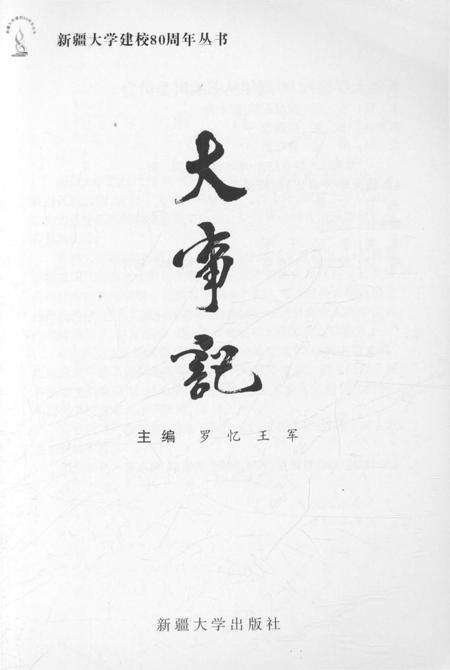 新疆大学建校80周年丛书
大
事
記
主编 罗忆 王军
新疆大学出版社